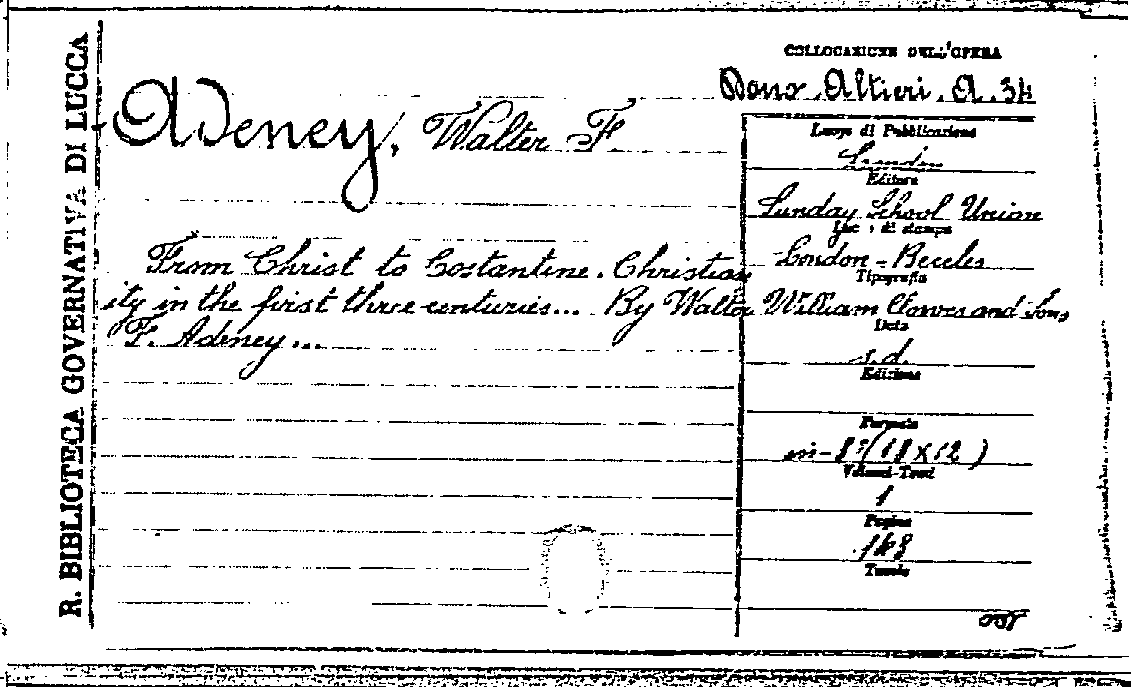 R. BIBLIOTECA GOVERNATIVA DI LUCCA
COLLOCAZIONE DELL'OPERA
Dono Altieri. A. 34
Adeney, Walter F.
Luogo di Pubblicazione
London
Editore
Sunday School Union
Luogo di stampa
From Christ to Costantine. Christian
London - Beccles
Tipografia
ity in the first three centuries... By Walter
William Clowes and Sons
Data
F. Adeney...
s.d.
Edizione
Formato
in-8° (18 x 12)
Volumi-Tomi
1
Pagine
Tavole